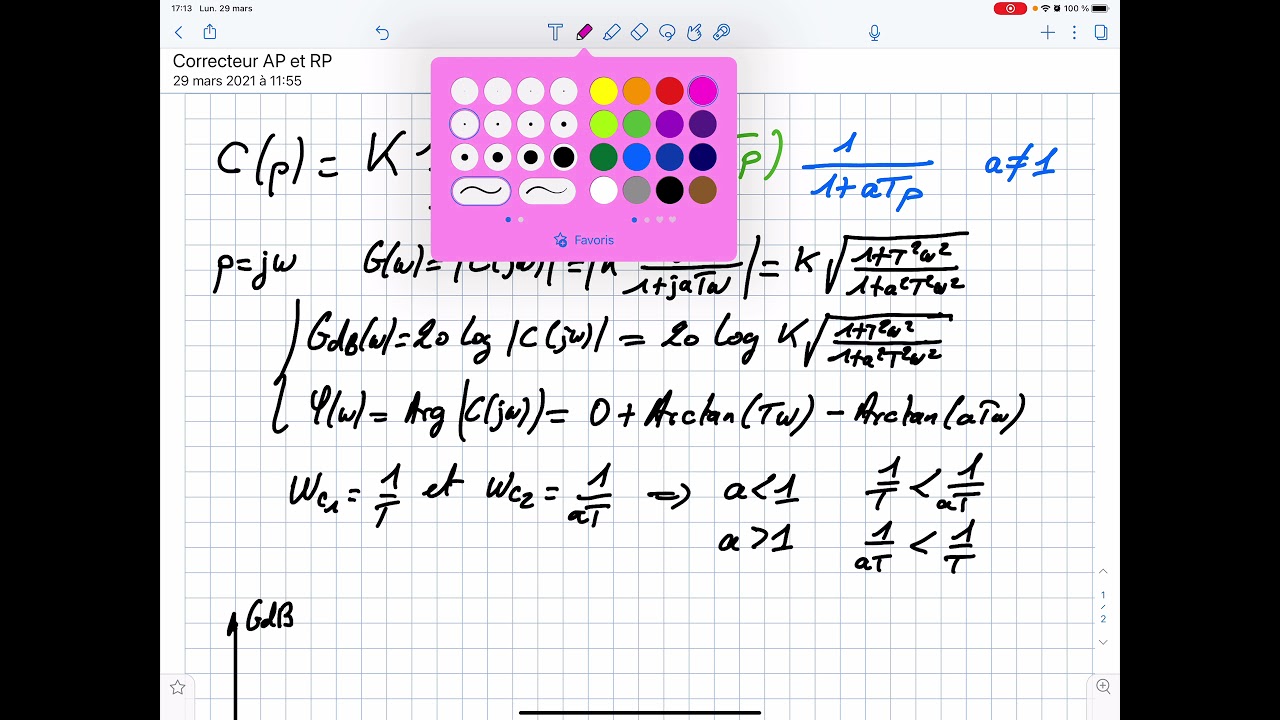 17:13 Lun. 29 mars 100 %
Correcteur AP et RP
29 mars 2021 à 11:55
C(p) = K 1 p) 1/(1+aTp) a≠1
Favoris
p=jω G(ω)=|C(jω)|=|K /(1+jaTω)|= K√((1+T²ω²)/(1+a²T²ω²))
GdB(ω)=20 log |C(jω)| = 20 log K√((1+T²ω²)/(1+a²T²ω²))
φ(ω)= Arg(C(jω))= 0 + Arctan(Tω) - Arctan(aTω)
ωc₁ = 1/T et ωc₂ = 1/aT ⇒ a<1 1/T < 1/aT
a>1 1/aT < 1/T
1
/
2
GdB